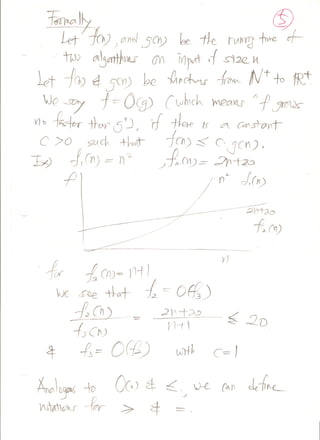 Formally
5
Let f(n), and g(n) be the runing time of
two algorithms on input of size n
Let f(n) & g(n) be functions from N⁺ to R⁺
We say f = O(g) (which means "f grows
no faster than g"), if there is a constant
C > 0 such that f(n) ≤ c·g(n).
Ex) f₁(n) = n² , f₂(n) = 2n+20
f
n² f₁(n)
2n+20
f₂(n)
n
for f₃(n) = n+1
We see that f₂ = O(f₃)
f₂(n) / f₃(n) = 2n+20 / n+1 ≤ 20
& f₃ = O(f₂) with c=1
Analogous to O(·) & ≤, we can define
notations for > & =.